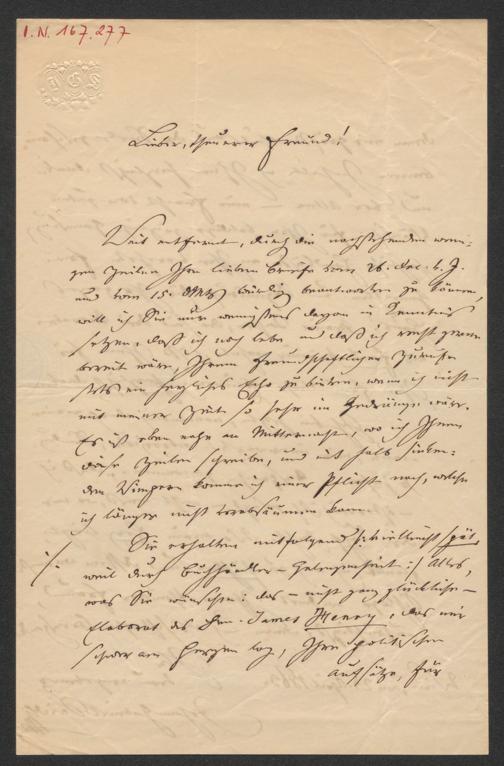 I.N. 167.277
Lieber, theurer Freund!
Weit entfernt, durch die nachstehenden weni-
gen Zeilen Ihre lieben Briefe vom 26. Dec. v. J.
und vom 15. würdig beantworten zu können,
will ich Sie nur wenigstens davon in Kenntniß
setzen, daß ich noch lebe und daß ich recht gerne
bereit wäre, Ihrem freundschaftlichen Zurufe
stets ein herzliches Echo zu bieten, wenn ich nicht
mit meiner Zeit so sehr im Gedränge wäre.
Es ist eben nahe an Mitternacht, wo ich Ihnen
diese Zeilen schreibe, und mit halb sinken-
den Wimpern komme ich einer Pflicht nach, welche
ich länger nicht versäumen kann.
Sie erhalten mitfolgend /: vielleicht spät,
weil durch Buchhändler-Gelegenheit :/ Alles,
was Sie wünschen: das – nicht ganz glückliche –
Elaborat des Hrn. James Henry, das mir
schwer am Herzen lag, Ihre politischen
Aufsätze, für